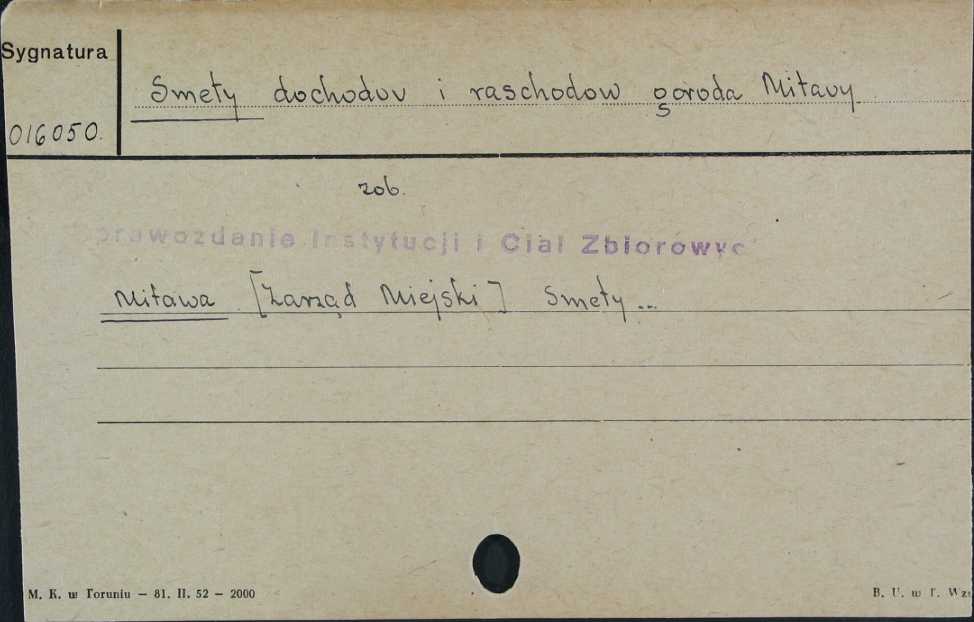 Sygnatura
Smety dochodov i raschodow goroda Mitavy
016050.
zob.
prawozdanie Instytucji i Ciał Zbiorowyc
Mitawa [Zarząd Miejski] Smety...
M. K. w Toruniu — 81. II. 52 — 2000
B. U. w T.